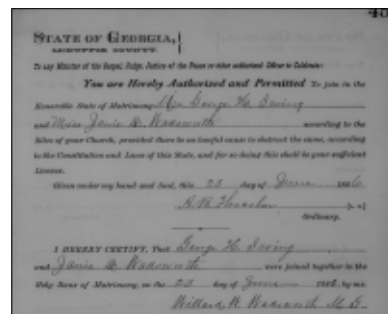 STATE OF GEORGIA,
SUMPTER COUNTY.
To any Minister of the Gospel, Judge, Justice of the Peace or other authorized Officer to Celebrate:
You are Hereby Authorized and Permitted To join in the
Honorable State of Matrimony Mr. George H. Irving
and Miss Janie D. Wadsworth according to the
Rites of your Church, provided there be no lawful cause to obstruct the same, according
to the Constitution and Laws of this State, and for so doing this shall be your sufficient
License.
Given under my hand and Seal, this 23 day of June 1886
A. C.
Ordinary.
I HEREBY CERTIFY, That George H. Irving
and Janie D. Wadsworth were joined together in the
Holy Bans of Matrimony, on the 23 day of June 1886, by me
Willard W. Wadsworth M. G.